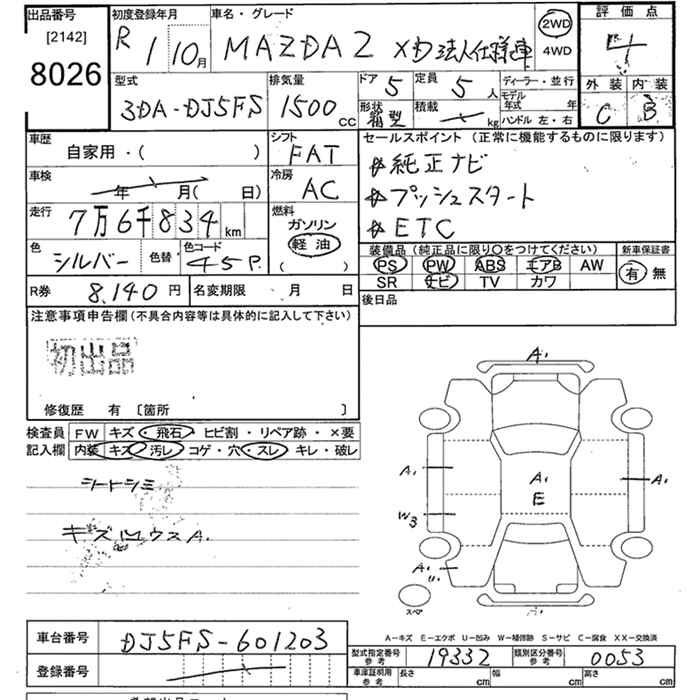 出品番号
[2142]
8026
初度登録年月
R 1 10月
車名・グレード
MAZDA2 XD法人仕様車
2WD
4WD
評価点
4
外装 内装
C B
型式
3DA-DJ5FS
排気量
1500 cc
ドア 5
形状 箱型
定員 5 人
積載 kg
ディーラー・並行
モデル年式 年
ハンドル 左・右
車歴
自家用・( )
シフト
FAT
車検
年 月( 日)
冷房
AC
走行
7万6千834 km
燃料
ガソリン
軽油
( )
色
シルバー
色替
色コード
45P
セールスポイント (正常に機能するものに限ります)
純正ナビ
プッシュスタート
ETC
装備品 (純正品に限り○をつけてください)
PS PW ABS エアB AW
SR ナビ TV カワ
新車保証書
有 無
R券 8,140 円
名変期限 月 日
後日品
注意事項申告欄 (不具合内容等は具体的に記入して下さい)
初出品
修復歴 有 〔箇所 〕
検査員記入欄
FW キズ・飛石・ヒビ割・リペア跡・×要
内装 キズ・汚レ・コゲ・穴・スレ・キレ・破レ
シートシミ
キズ ウスA.
A.
A.
A.
E
A.
W3
A.
スペア
A.
A−キズ E−エクボ U−凹み W−補修跡 S−サビ C−腐食 XX−交換済
車台番号
DJ5FS-601203
登録番号
型式指定番号 参考
19332
類別区分番号 参考
0053
車庫証明用 参考
長さ cm
幅 cm
高さ cm